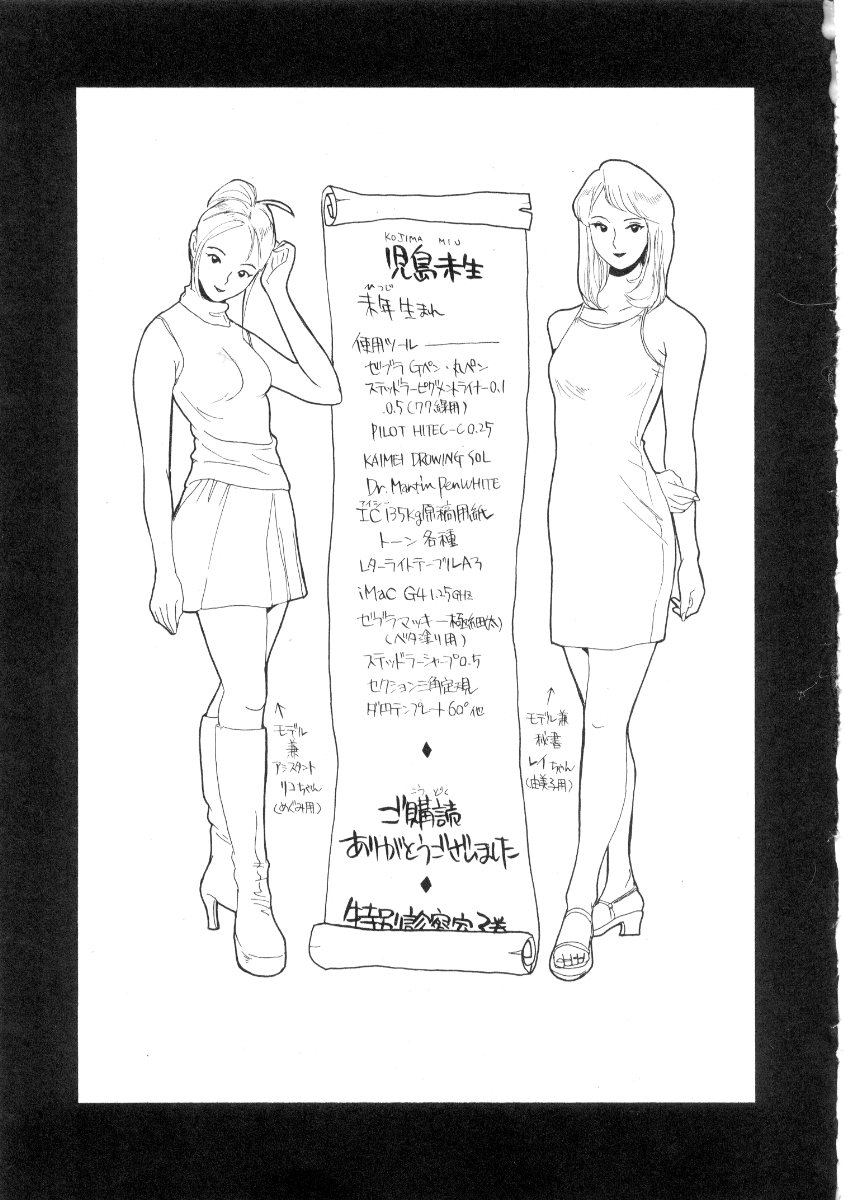 KOJIMA MIU
児島未生
ひつじ
未年生まれ
使用ツール
ゼブラ Gペン・丸ペン
ステッドラーピグメントライナー0.1
0.5(ワク線用)
PILOT HITEC-C 0.25
KAIMEI DROWING SOL
Dr. Martin PenWHITE
アイシー
IC 135kg原稿用紙
トーン各種
レターライトテーブルA3
iMac G4 1.25GHz
ゼブラマッキー極細(太)
(ベタ塗り用)
ステッドラーシャープ0.5
セクション三角定規
ダ円テンプレート60°他
♦
こうどく
ご購読
ありがとうございました
♦
特別診察室 2巻
↑
モデル
兼
アシスタント
リコちゃん
(めぐみ用)
↑
モデル兼
秘書
レイちゃん
(由美子用)